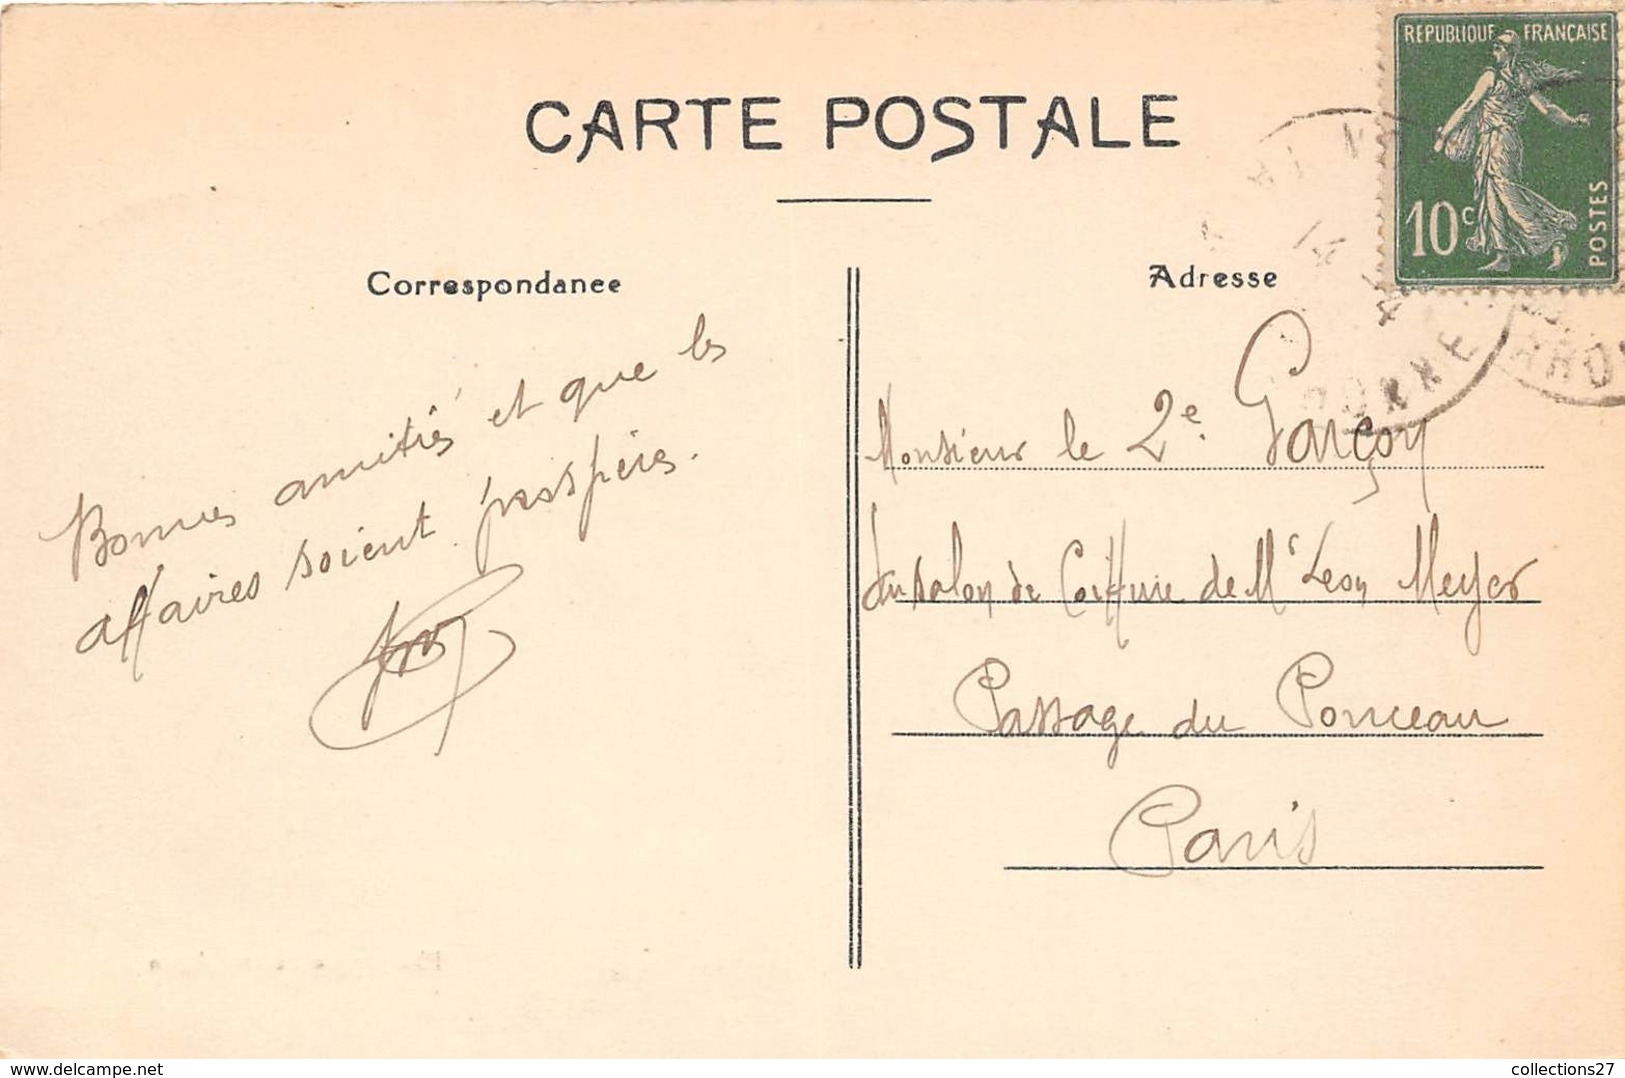 CARTE POSTALE
REPUBLIQUE FRANÇAISE
10c
POSTES
Correspondance
Bonnes amitiés et que les
affaires soient prospères.
Adresse
Monsieur le 2e Garçon
du salon de Coiffure de Mr Leon Meyer
Passage du Ponceau
Paris
www.delcampe.net
collections27